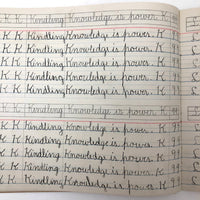 K K K Kindling Knowledge is power. K 99
K K Kindling Knowledge is power. K 99
K K Kindling Knowledge is power. K 99
K K Kindling Knowledge is power. K 99
K K Kindling Knowledge is power. K 99
K K Kindling Knowledge is power. K 99
K K Kindling Knowledge is power. K 99
K K Kindling Knowledge is power. K 99
K K Kindling Knowledge is power. K 99
K K Kindling Knowledge is power. K 99